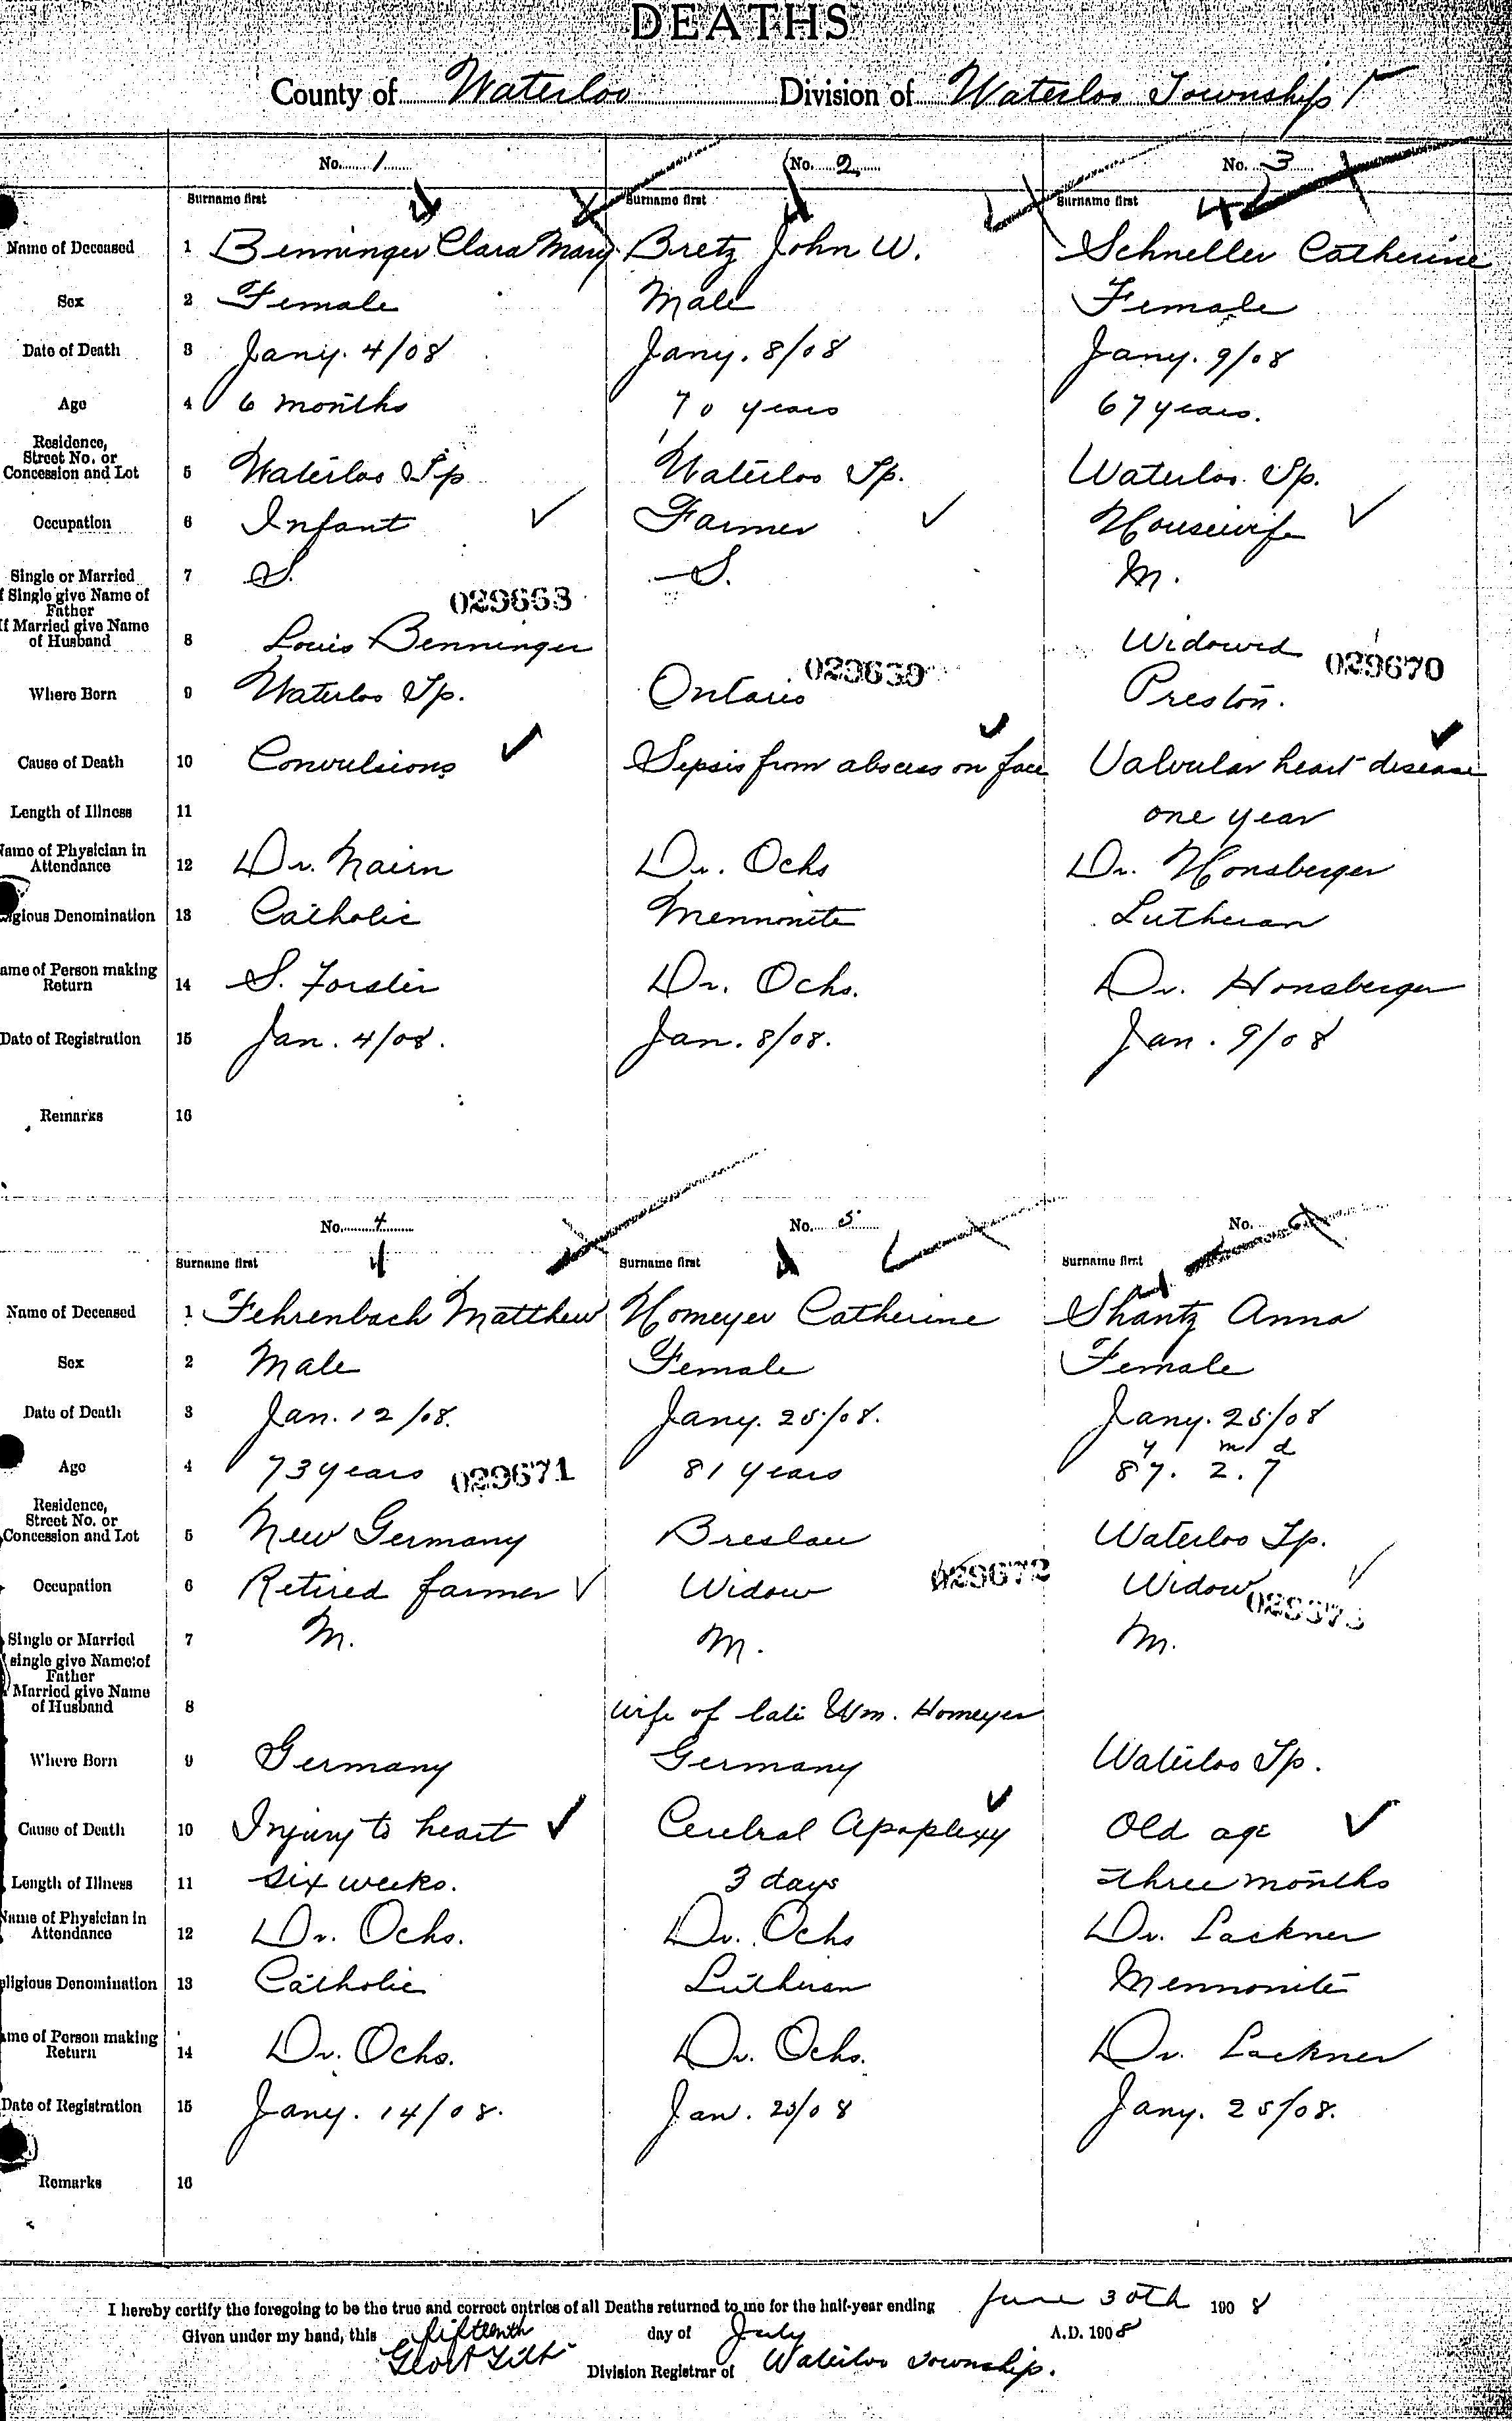 DEATHS
County of Waterloo Division of Waterloo Township
No. 1 No. 2 No. 3
Surname first Surname first Surname first
Name of Deceased 1 Benninger Clara Mary Bretz John W. Schneller Catherine
Sex 2 Female Male Female
Date of Death 3 Jany. 4/08 Jany. 8/08 Jany. 9/08
Age 4 6 months 70 years 67 years.
Residence,
Street No. or
Concession and Lot 5 Waterloo Tp Waterloo Tp. Waterloo Tp.
Occupation 6 Infant Farmer Housewife
Single or Married 7 S. S. M.
f Single give Name of
Father 029668
If Married give Name
of Husband 8 Louis Benninger Widowed
029670
Where Born 9 Waterloo Tp. Ontario Preston.
Cause of Death 10 Convulsions Sepsis from abscess on face Valvular heart disease
Length of Illness 11 one year
Name of Physician in
Attendance 12 Dr. Nairn Dr. Ochs Dr. Honsberger
igious Denomination 13 Catholic Mennonite Lutheran
ame of Person making
Return 14 S. Forster Dr. Ochs. Dr. Honsberger
Date of Registration 15 Jan. 4/08. Jan. 8/08. Jan. 9/08
Remarks 16
No. 4 No. 5 No.
Surname first Surname first Surname first
Name of Deceased 1 Fehrenbach Matthew Homeyer Catherine Shantz Anna
Sex 2 Male Female Female
Date of Death 3 Jan. 12/08. Jany. 25/08. Jany. 25/08
y m d
Age 4 73 years 029671 81 years 87. 2. 7
Residence,
Street No. or
Concession and Lot 5 New Germany Breslau Waterloo Tp.
Occupation 6 Retired farmer Widow 029672 Widow
Single or Married 7 M. M. M.
single give Name of
Father
Married give Name
of Husband 8 wife of late Wm. Homeyer
Where Born 9 Germany Germany Waterloo Tp.
Cause of Death 10 Injury to heart Cerebral Apoplexy Old age
Length of Illness 11 six weeks. 3 days three months
Name of Physician in
Attendance 12 Dr. Ochs. Dr. Ochs Dr. Lackner
eligious Denomination 13 Catholic Lutheran Mennonite
ame of Person making
Return 14 Dr. Ochs. Dr. Ochs. Dr. Lackner
Date of Registration 15 Jany. 14/08. Jan. 25/08 Jany. 25/08.
Remarks 16
I hereby certify the foregoing to be the true and correct entries of all Deaths returned to me for the half-year ending June 30th 1908
Given under my hand, this fifteenth day of July A.D. 1908
Division Registrar of Waterloo Township.